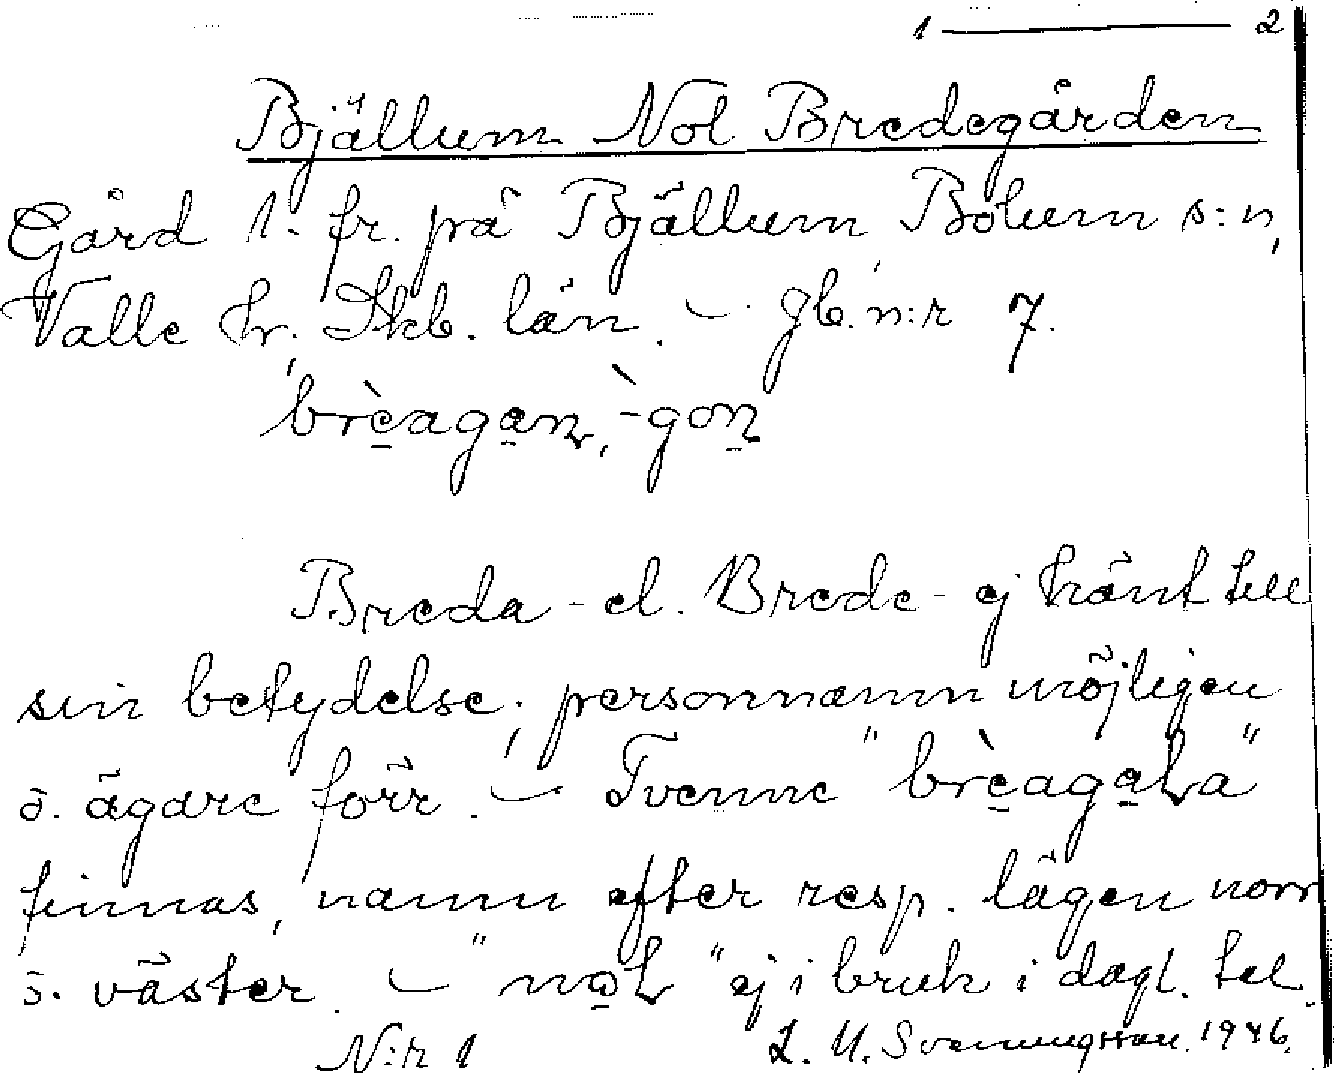 1 — 2
Bjällum Nol Bredegården
Gård 1. fr. på Bjällum Bolum s:n,
Valle hr, Skb. län. – gb. n:r 7.
brèagan, -gon
Breda- el. Brede- ej känt till
sin betydelse; personnamn möjligen
o. ägare förr. – Tvenne "brèagaha"
finnas, namn efter resp. lägen norr
o. väster. – "nol" ej i bruk i dagl. tal.
N:r 1 L. U. Svenungsson. 1946.